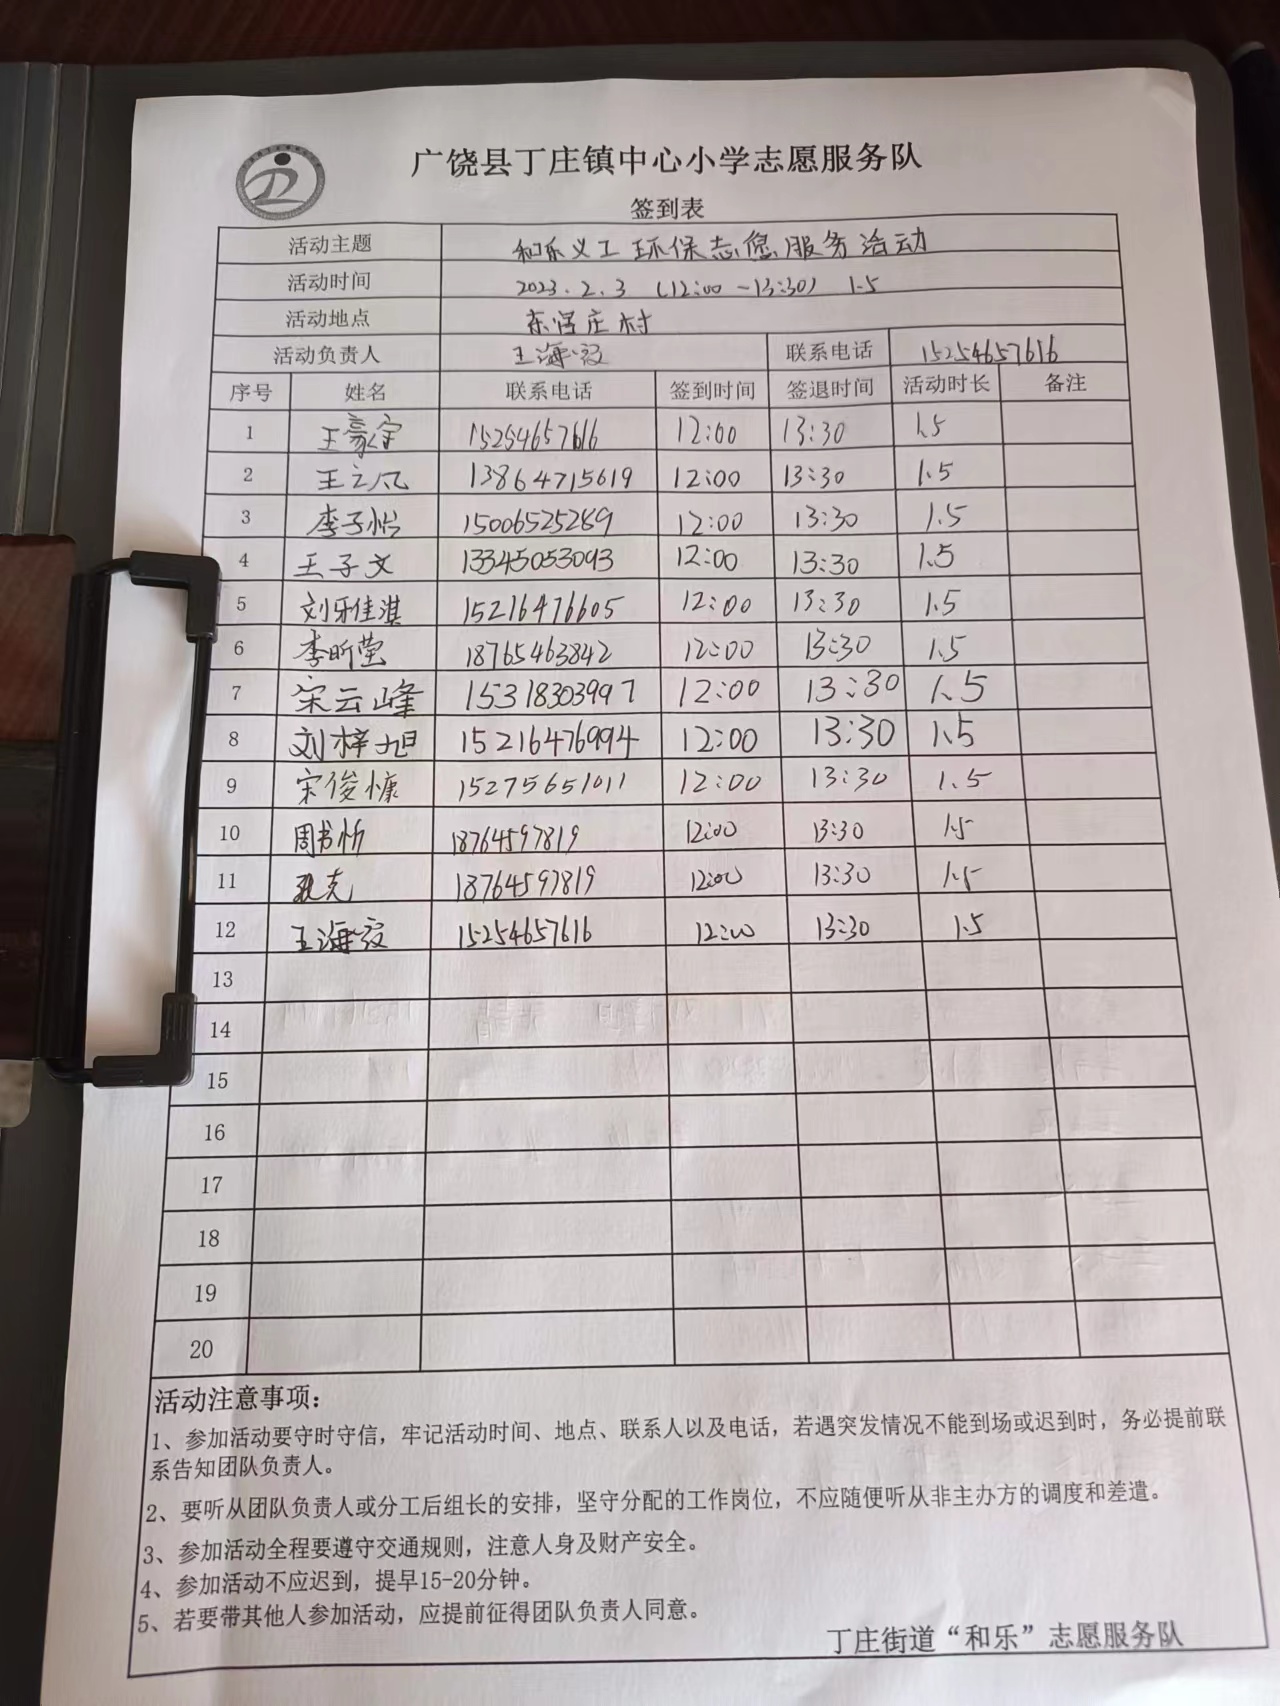 广饶县丁庄镇中心小学志愿服务队
签到表
活动主题 和乐义工环保志愿服务活动
活动时间 2023.2.3 (12:00-13:30) 1.5
活动地点 东营庄村
活动负责人 王海 联系电话 15254657616
序号 姓名 联系电话 签到时间 签退时间 活动时长 备注
1 王豪宇 15254657616 12:00 13:30 1.5
2 王之凡 13864715619 12:00 13:30 1.5
3 李子怡 15006525289 12:00 13:30 1.5
4 王子文 13345053093 12:00 13:30 1.5
5 刘雅佳淇 15216476605 12:00 13:30 1.5
6 李昕莹 18765463842 12:00 13:30 1.5
7 宋云峰 15318303997 12:00 13:30 1.5
8 刘梓旭 15216476994 12:00 13:30 1.5
9 宋俊慷 15275651011 12:00 13:30 1.5
10 周书忻 18764597819 12:00 13:30 1.5
11 孔克 18764597819 12:00 13:30 1.5
12 王海 15254657616 12:00 13:30 1.5
13
14
15
16
17
18
19
20
活动注意事项：
1、参加活动要守时守信，牢记活动时间、地点、联系人以及电话，若遇突发情况不能到场或迟到时，务必提前联
系告知团队负责人。
2、要听从团队负责人或分工后组长的安排，坚守分配的工作岗位，不应随便听从非主办方的调度和差遣。
3、参加活动全程要遵守交通规则，注意人身及财产安全。
4、参加活动不应迟到，提早15-20分钟。
5、若要带其他人参加活动，应提前征得团队负责人同意。
丁庄街道“和乐”志愿服务队